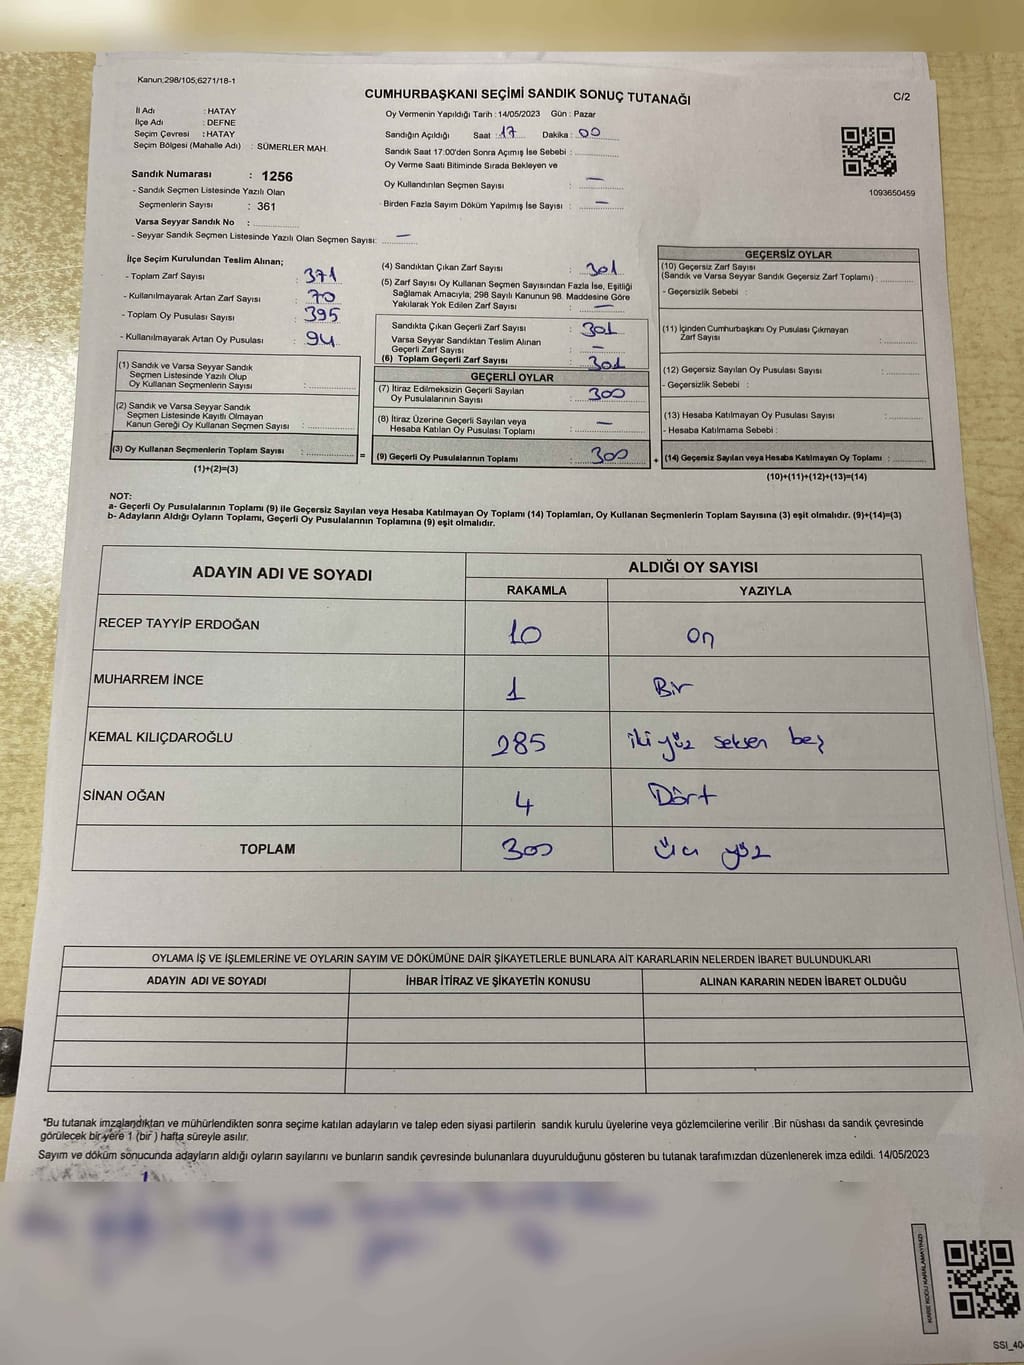 Kanun,298/105,6271/18-1
CUMHURBAŞKANI SEÇİMİ SANDIK SONUÇ TUTANAĞI
C/2
İl Adı : HATAY
İlçe Adı : DEFNE
Seçim Çevresi : HATAY
Seçim Bölgesi (Mahalle Adı) : SÜMERLER MAH.
Sandık Numarası : 1256
- Sandık Seçmen Listesinde Yazılı Olan
Seçmenlerin Sayısı : 361
Varsa Seyyar Sandık No :
- Seyyar Sandık Seçmen Listesinde Yazılı Olan Seçmen Sayısı: —
Oy Vermenin Yapıldığı Tarih : 14/05/2023 Gün : Pazar
Sandığın Açıldığı Saat : 17 Dakika : 00
Sandık Saat 17:00'den Sonra Açımış İse Sebebi :
Oy Verme Saati Bitiminde Sırada Bekleyen ve
Oy Kullandırılan Seçmen Sayısı : —
Birden Fazla Sayım Döküm Yapılmış İse Sayısı : —
1093650459
İlçe Seçim Kurulundan Teslim Alınan;
- Toplam Zarf Sayısı : 371
- Kullanılmayarak Artan Zarf Sayısı : 70
- Toplam Oy Pusulası Sayısı : 395
- Kullanılmayarak Artan Oy Pusulası : 94
(1) Sandık ve Varsa Seyyar Sandık
Seçmen Listesinde Yazılı Olup
Oy Kullanan Seçmenlerin Sayısı :
(2) Sandık ve Varsa Seyyar Sandık
Seçmen Listesinde Kayıtlı Olmayan
Kanun Gereği Oy Kullanan Seçmen Sayısı :
(3) Oy Kullanan Seçmenlerin Toplam Sayısı :
(1)+(2)=(3)
(4) Sandıktan Çıkan Zarf Sayısı : 301
(5) Zarf Sayısı Oy Kullanan Seçmen Sayısından Fazla İse, Eşitliği
Sağlamak Amacıyla; 298 Sayılı Kanunun 98. Maddesine Göre
Yakılarak Yok Edilen Zarf Sayısı : —
Sandıkta Çıkan Geçerli Zarf Sayısı : 301
Varsa Seyyar Sandıktan Teslim Alınan
Geçerli Zarf Sayısı : —
(6) Toplam Geçerli Zarf Sayısı : 301
GEÇERLİ OYLAR
(7) İtiraz Edilmeksizin Geçerli Sayılan
Oy Pusulalarının Sayısı : 300
(8) İtiraz Üzerine Geçerli Sayılan veya
Hesaba Katılan Oy Pusulası Toplamı : —
(9) Geçerli Oy Pusulalarının Toplamı : 300
=
+
GEÇERSİZ OYLAR
(10) Geçersiz Zarf Sayısı
(Sandık ve Varsa Seyyar Sandık Geçersiz Zarf Toplamı) :
- Geçersizlik Sebebi :
(11) İçinden Cumhurbaşkanı Oy Pusulası Çıkmayan
Zarf Sayısı :
(12) Geçersiz Sayılan Oy Pusulası Sayısı :
- Geçersizlik Sebebi :
(13) Hesaba Katılmayan Oy Pusulası Sayısı :
- Hesaba Katılmama Sebebi :
(14) Geçersiz Sayılan veya Hesaba Katılmayan Oy Toplamı :
(10)+(11)+(12)+(13)=(14)
NOT:
a- Geçerli Oy Pusulalarının Toplamı (9) ile Geçersiz Sayılan veya Hesaba Katılmayan Oy Toplamı (14) Toplamları, Oy Kullanan Seçmenlerin Toplam Sayısına (3) eşit olmalıdır. (9)+(14)=(3)
b- Adayların Aldığı Oyların Toplamı, Geçerli Oy Pusulalarının Toplamına (9) eşit olmalıdır.
ADAYIN ADI VE SOYADI
ALDIĞI OY SAYISI
RAKAMLA YAZIYLA
RECEP TAYYİP ERDOĞAN 10 On
MUHARREM İNCE 1 Bir
KEMAL KILIÇDAROĞLU 285 iki yüz seksen beş
SİNAN OĞAN 4 Dört
TOPLAM 300 Üç yüz
OYLAMA İŞ VE İŞLEMLERİNE VE OYLARIN SAYIM VE DÖKÜMÜNE DAİR ŞİKAYETLERLE BUNLARA AİT KARARLARIN NELERDEN İBARET BULUNDUKLARI
ADAYIN ADI VE SOYADI İHBAR İTİRAZ VE ŞİKAYETİN KONUSU ALINAN KARARIN NEDEN İBARET OLDUĞU
*Bu tutanak imzalandıktan ve mühürlendikten sonra seçime katılan adayların ve talep eden siyasi partilerin sandık kurulu üyelerine veya gözlemcilerine verilir .Bir nüshası da sandık çevresinde
görülecek bir yere 1 (bir ) hafta süreyle asılır.
Sayım ve döküm sonucunda adayların aldığı oyların sayılarını ve bunların sandık çevresinde bulunanlara duyurulduğunu gösteren bu tutanak tarafımızdan düzenlenerek imza edildi. 14/05/2023
KARE KODU KARALAMAYINIZ!
SSI_40